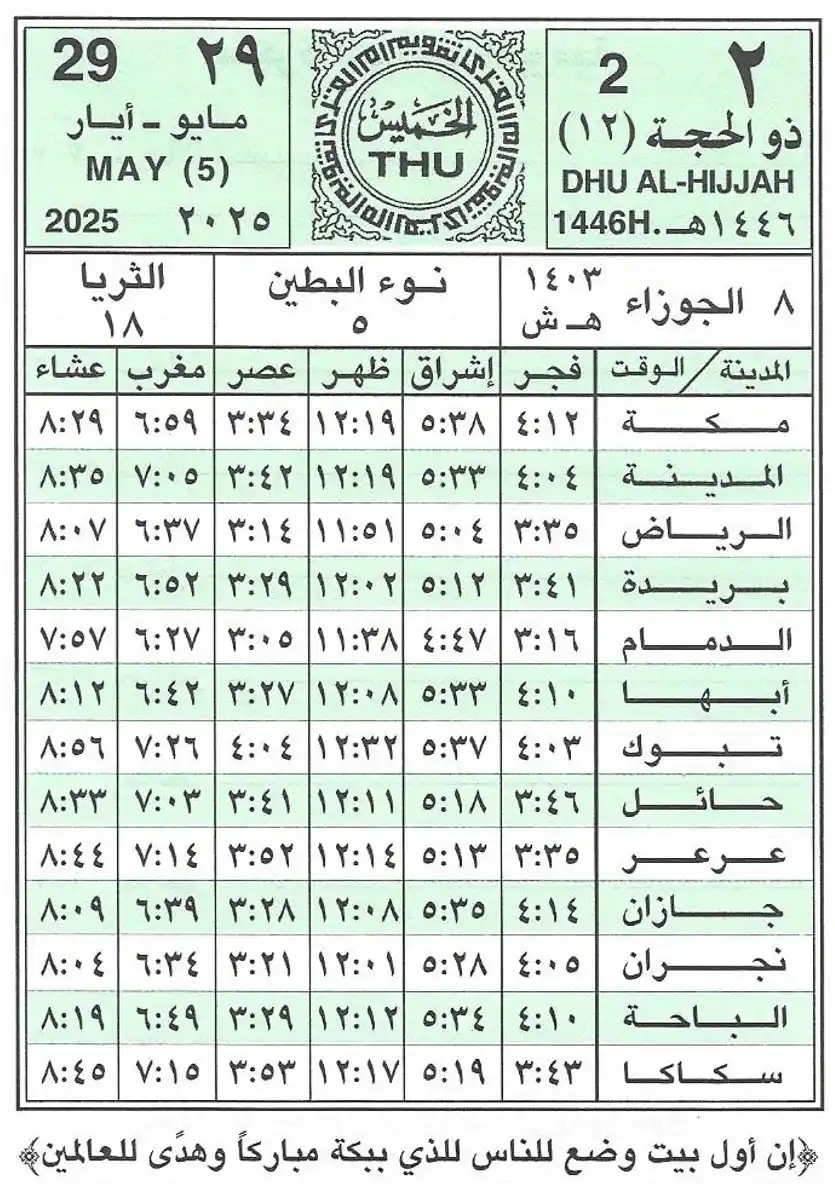 ٢ 2
ذو الحجة (١٢)
DHU AL-HIJJAH
1446H. ١٤٤٦هـ
الخميس
THU
29 ٢٩
مايو - أيار
MAY (5)
2025 ٢٠٢٥
٨ الجوزاء ١٤٠٣ هـ ش
نوء البطين
٥
الثريا
١٨
المدينة / الوقت فجر إشراق ظهر عصر مغرب عشاء
مكة ٤:١٢ ٥:٣٨ ١٢:١٩ ٣:٣٤ ٦:٥٩ ٨:٢٩
المدينة ٤:٠٤ ٥:٣٣ ١٢:١٩ ٣:٤٢ ٧:٠٥ ٨:٣٥
الرياض ٣:٣٥ ٥:٠٤ ١١:٥١ ٣:١٤ ٦:٣٧ ٨:٠٧
بريدة ٣:٤١ ٥:١٢ ١٢:٠٢ ٣:٢٩ ٦:٥٢ ٨:٢٢
الدمام ٣:١٦ ٤:٤٧ ١١:٣٨ ٣:٠٥ ٦:٢٧ ٧:٥٧
أبها ٤:١٠ ٥:٣٣ ١٢:٠٨ ٣:٢٧ ٦:٤٢ ٨:١٢
تبوك ٤:٠٣ ٥:٣٧ ١٢:٣٢ ٤:٠٤ ٧:٢٦ ٨:٥٦
حائل ٣:٤٦ ٥:١٨ ١٢:١١ ٣:٤١ ٧:٠٣ ٨:٣٣
عرعر ٣:٣٥ ٥:١٣ ١٢:١٤ ٣:٥٢ ٧:١٤ ٨:٤٤
جازان ٤:١٤ ٥:٣٥ ١٢:٠٨ ٣:٢٨ ٦:٣٩ ٨:٠٩
نجران ٤:٠٥ ٥:٢٨ ١٢:٠١ ٣:٢١ ٦:٣٤ ٨:٠٤
الباحة ٤:١٠ ٥:٣٤ ١٢:١٢ ٣:٢٩ ٦:٤٩ ٨:١٩
سكاكا ٣:٤٣ ٥:١٩ ١٢:١٧ ٣:٥٣ ٧:١٥ ٨:٤٥
﴿إن أول بيت وضع للناس للذي ببكة مباركاً وهدًى للعالمين﴾